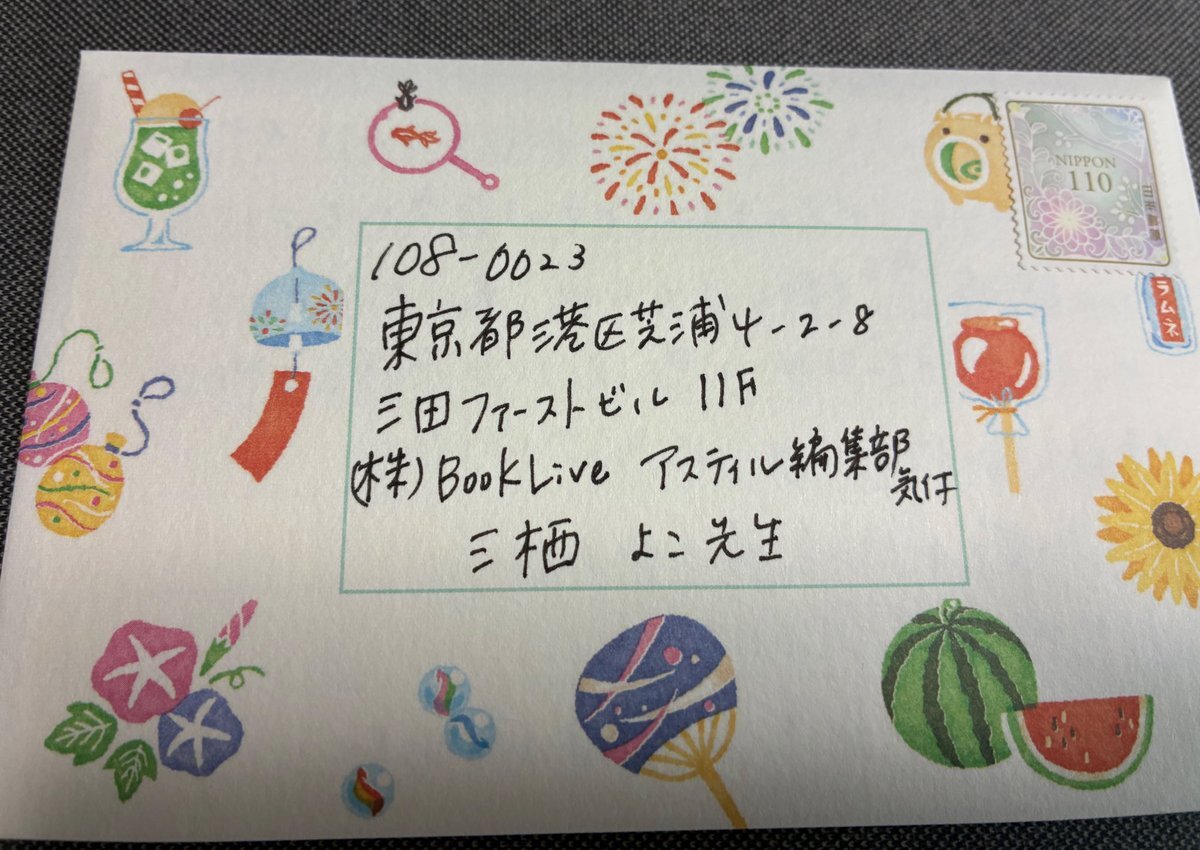 NIPPON
110
日本郵便
ラムネ
108-0023
東京都港区芝浦4-2-8
三田ファーストビル 11F
(株)BookLive アスティル編集部
気付
三栖 よこ先生